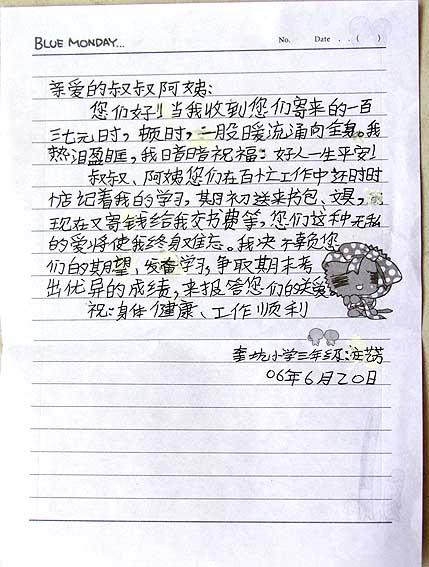 BLUE MONDAY... No. Date . . ( )
亲爱的叔叔阿姨:
您们好!当我收到您们寄来的一百
三十元时,顿时,一股暖流涌向全身。我
热泪盈眶,我暗暗祝福:好人一生平安!
叔叔、阿姨您们在百忙工作中还时时
惦记着我的学习,期初送来书包、文具,
现在又寄钱给我交书费等,您们这种无私
的爱将使我终身难忘。我决不辜负您
们的期望、发奋学习,争取期末考
出优异的成绩,来报答您们的关爱
祝:身体健康、工作顺利
坑小学三年级:汪艺芳
06年6月20日